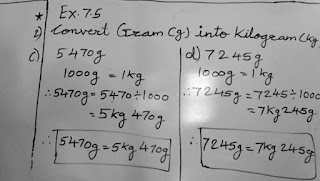 * Ex. 7.5
1) Convert Gram (g) into Kilogram (kg
c) 5470g
1000g = 1kg
∴ 5470g = 5470 ÷ 1000
= 5kg 470g
∴ 5470g = 5kg 470g
d) 7245g
1000g = 1kg
∴ 7245g = 7245 ÷ 1000
= 7kg 245g
∴ 7245g = 7kg 245g